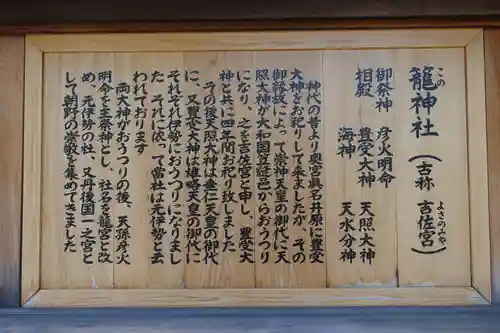 籠神社（古称 吉佐宮）
この
よさのみや
御祭神 彦火明命
相殿 豊受大神 天照大神
海神 天水分神
神代の昔より奥宮真名井原に豊受
大神をお祀りして来ましたが、その
御縁故によって崇神天皇の御代に天
照大神が大和国笠縫邑からおうつり
になり、之を吉佐宮と申し、豊受大
神と共に四年間お祀り致しました
その後天照大神は垂仁天皇の御代
に、又豊受大神は雄略天皇の御代に
それぞれ伊勢におうつりになりまし
た それに依って當社は元伊勢と云
われております
両大神がおうつりの後、天孫彦火
明命を主祭神とし、社名を籠宮と改
め、元伊勢の社、又丹後国一之宮と
して朝野の崇敬を集めてきました